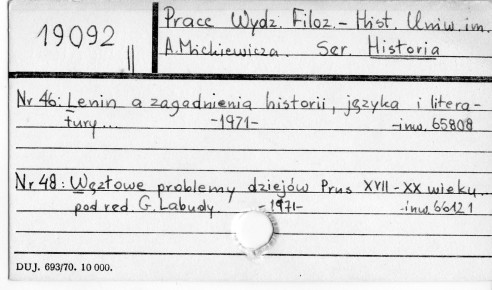 19092 ||
Prace Wydz. Filoz.-Hist. Uniw. im.
A. Mickiewicza. Ser. Historia
Nr 46: Lenin a zagadnienia historii, języka i litera-
tury... -1971- -inw. 65808
Nr 48: Węzłowe problemy dziejów Prus XVII-XX wieku...
pod red. G. Labudy. -1971- -inw. 66121
DUJ. 693/70. 10 000.